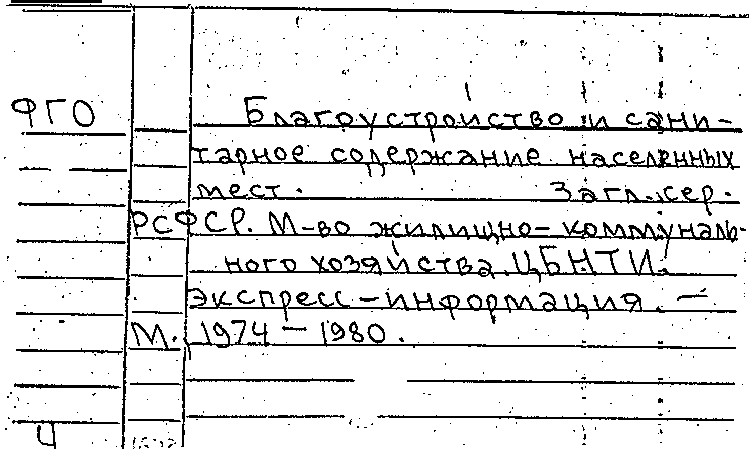 ФГО Благоустройство и сани-
тарное содержание населенных
мест. Загл. сер.
РСФСР. М-во жилищно-коммуналь-
ного хозяйства. ЦБНТИ.
Экспресс-информация. —
М., 1974 — 1980.
Ч